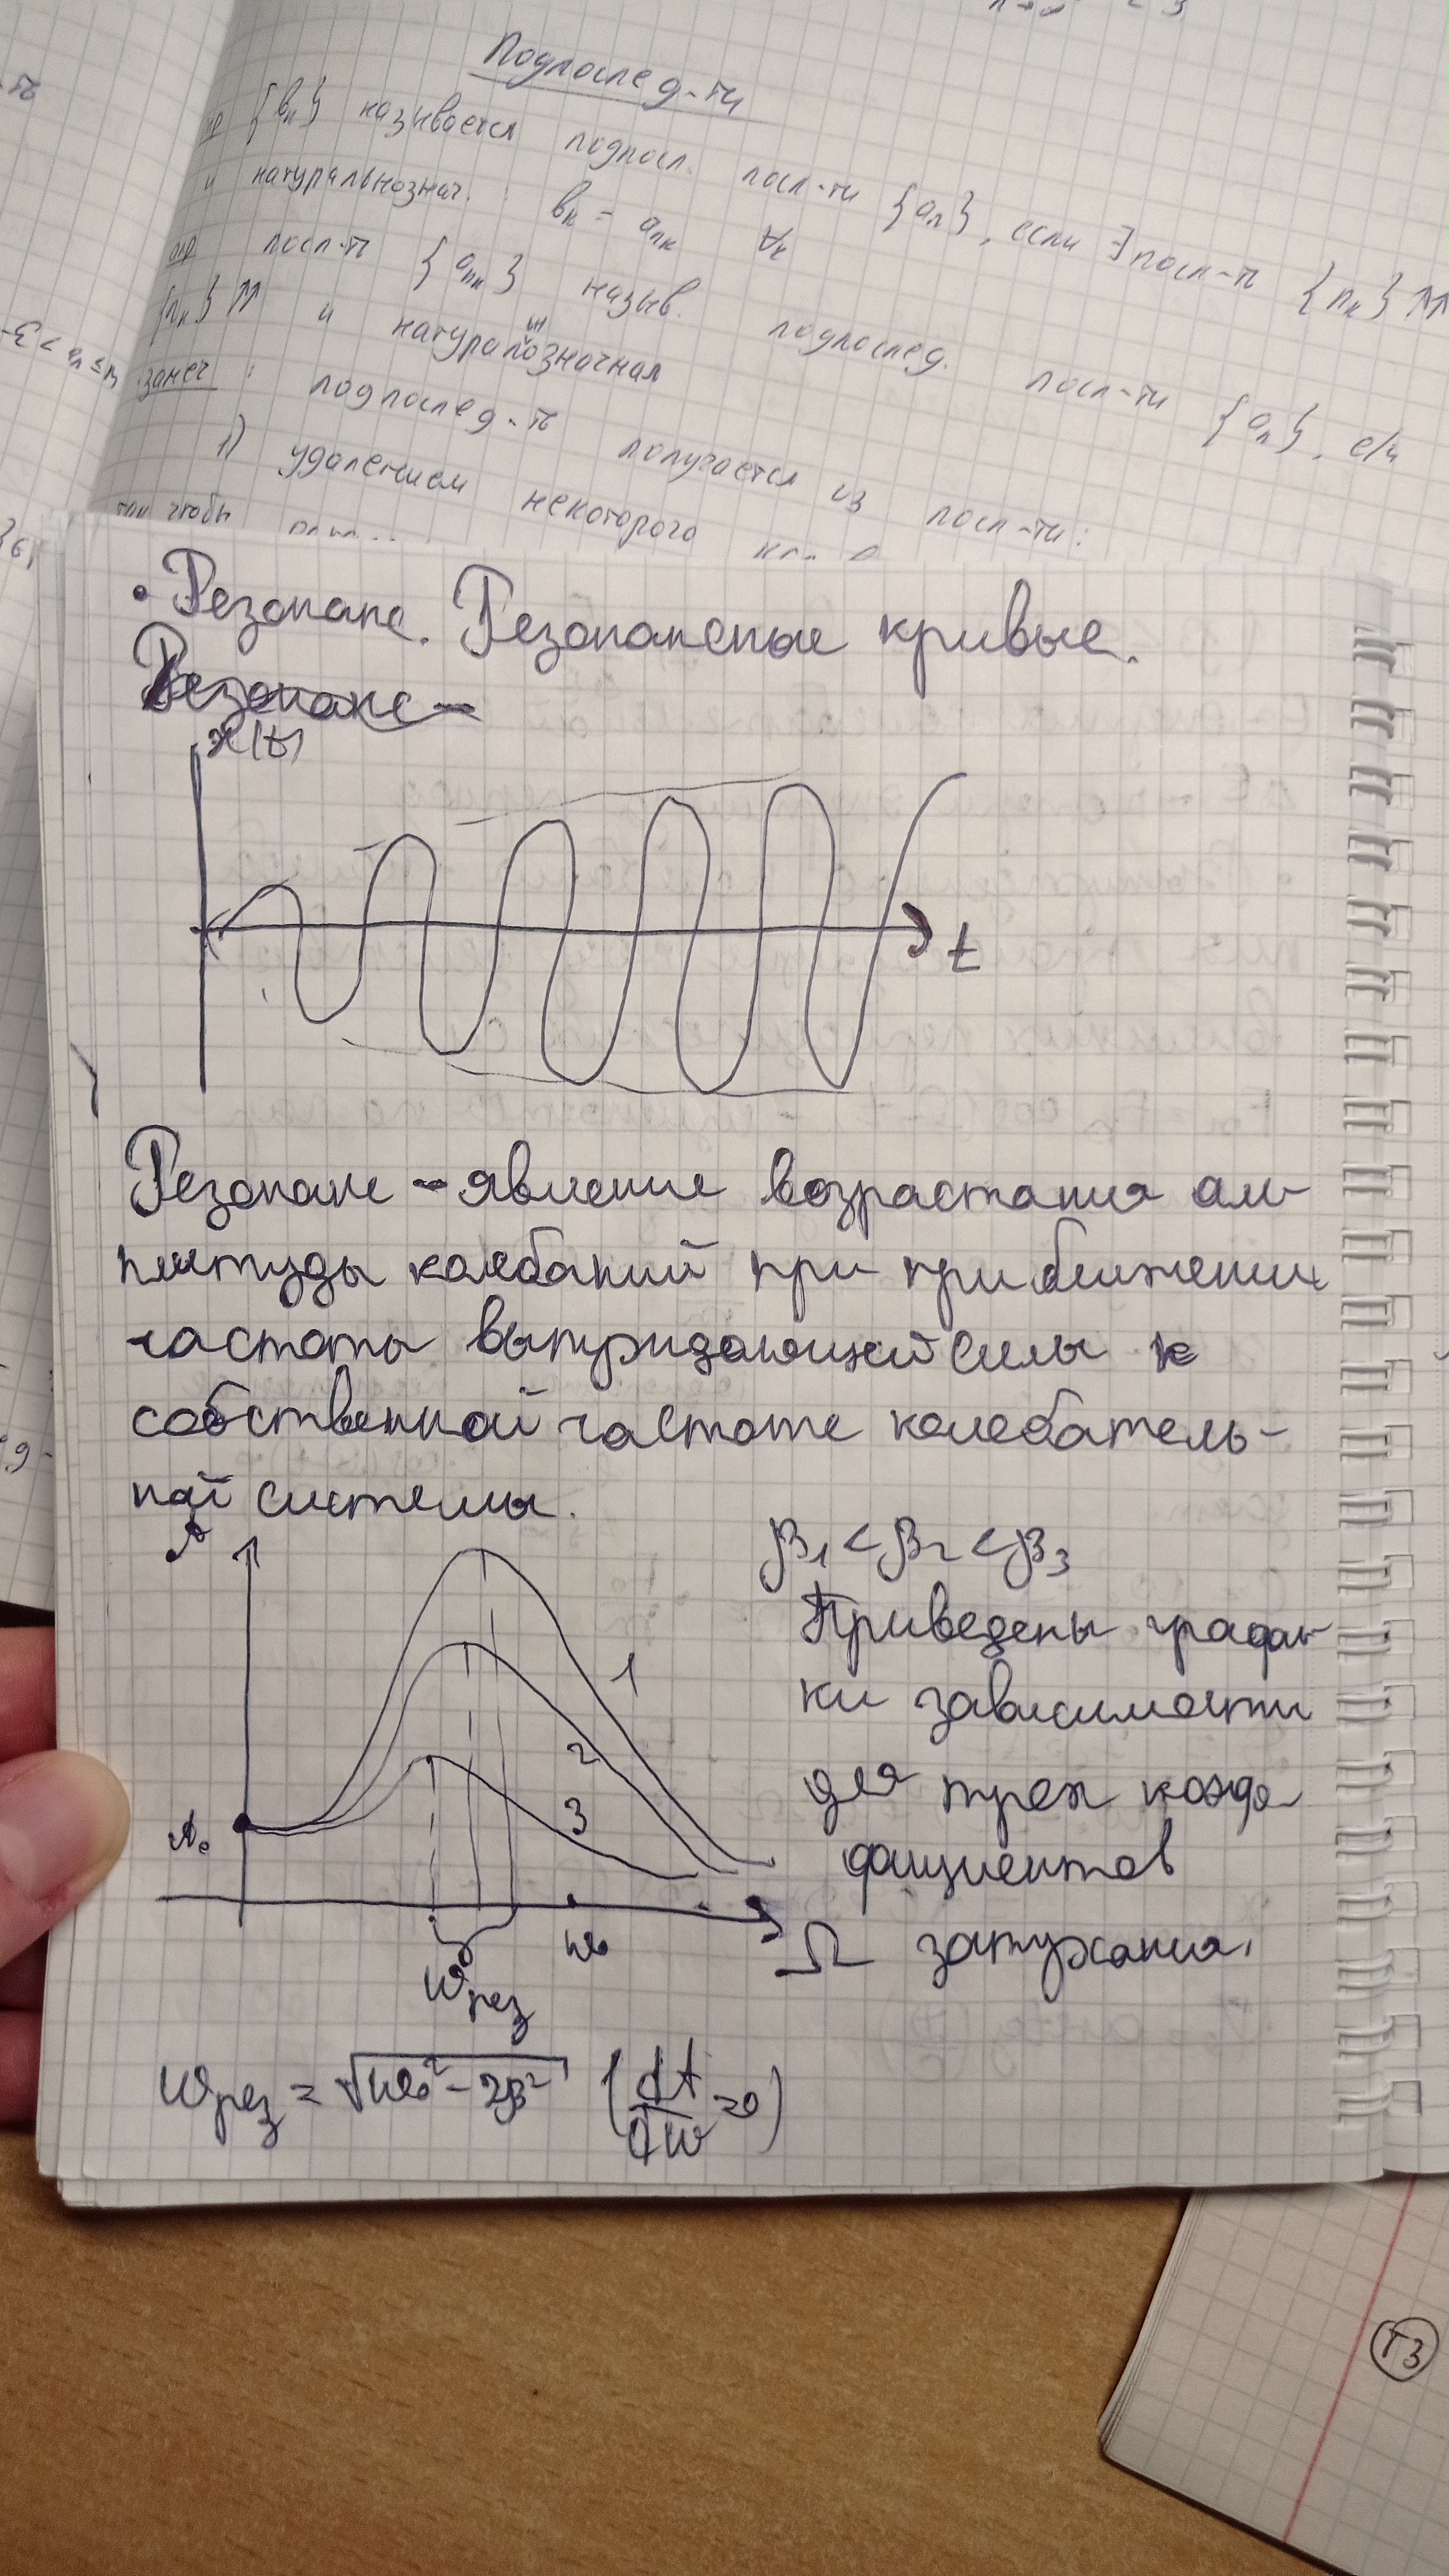 Подпослед-ти
опр {bₖ} называется подпосл. посл-ти {aₙ}, если ∃ посл-ть {nₖ} ⇈
и натуральнознач. : bₖ = aₙₖ ∀k
опр посл-ть {aₙₖ} назыв. подпослед. посл-ти {aₙ}, если
{nₖ} ⇈ и натуральнозначная
замеч : подпослед-ть получается из посл-ти:
1) удалением некоторого
так чтобы
• Резонанс. Резонансные кривые.
Резонанс –
x(t)
t
Резонанс – явление возрастания ам-
плитуды колебаний при приближении
частоты вынуждающей силы к
собственной частоте колебатель-
ной системы.
A
β₁ < β₂ < β₃
Приведены графи-
ки зависимости
для трех коэф
фициентов
затухания.
1
2
3
A₀
ω₀
Ω
ωрез
ωрез = √ω₀² - 2β² (dA/dω = 0)
T3